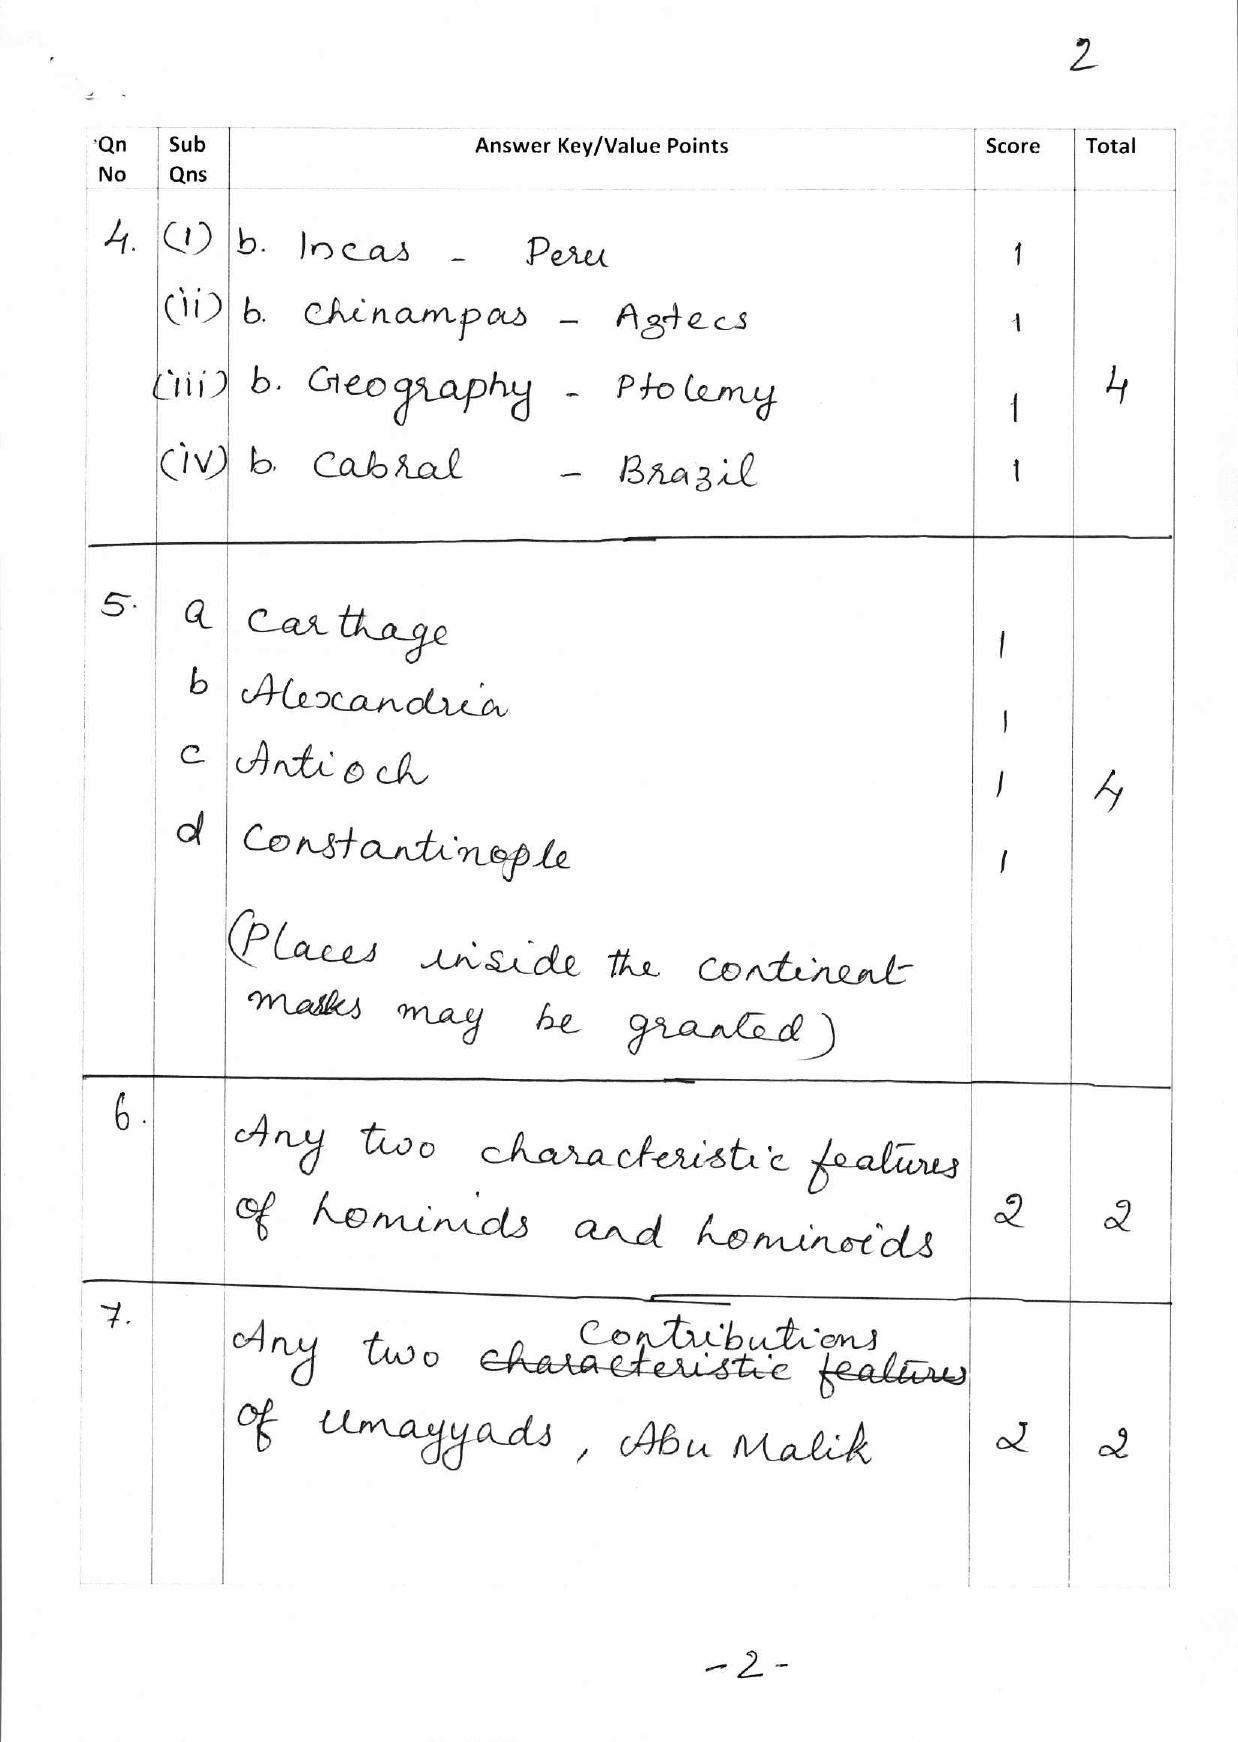 2
Qn No Sub Qns Answer Key/Value Points Score Total
4. (i) b. Incas - Peru 1
(ii) b. Chinampas - Aztecs 1
(iii) b. Geography - Ptolemy 1 4
(iv) b. Cabral - Brazil 1
5. a Carthage 1
b Alexandria 1
c Antioch 1 4
d Constantinople 1
(Places inside the continent
marks may be granted)
6. Any two characteristic features
of hominids and hominoids 2 2
7. Any two characteristic features Contributions
of Umayyads, Abu Malik 2 2
-2-